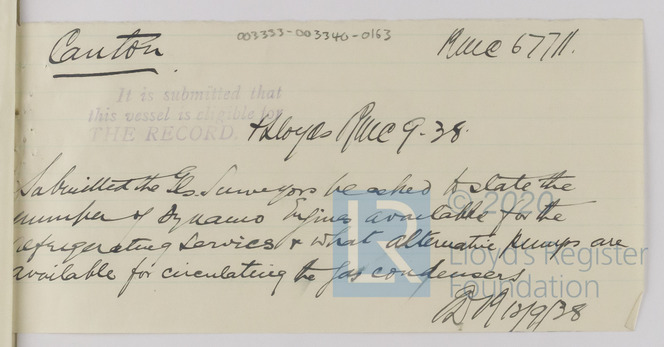 003333-003340-0163
Canton
RMC 67711.
It is submitted that
this vessel is eligible for
THE RECORD.
+ Lloyds RMC 9.38.
Submitted the Gls. Surveyors be asked to state the
number of Dynamo Engines available for the
refrigerating services & what alternative pumps are
available for circulating the gas condensers
13/9/38
© 2020
Lloyd's Register
Foundation
LR